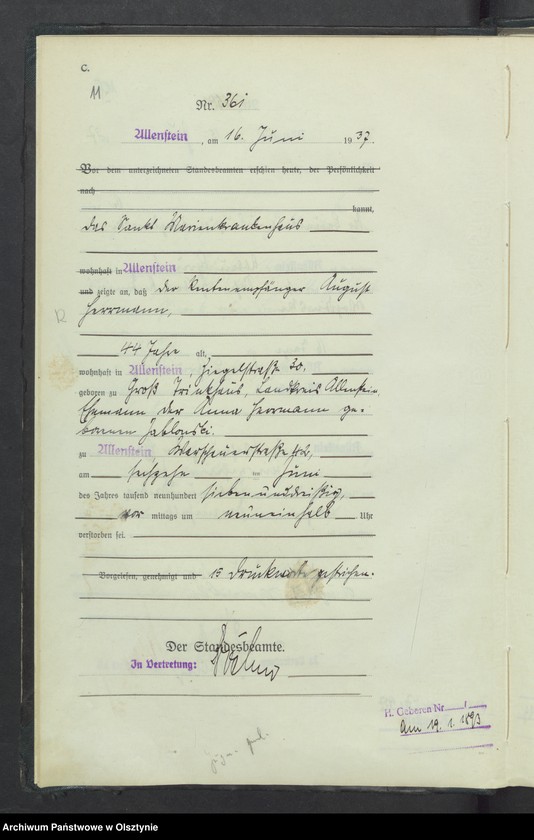 C.
11
Nr. 361
Allenstein, am 16. Juni 1937.
Vor dem unterzeichneten Standesbeamten erschien heute, der Persönlichkeit
nach
kannt,
das Sankt Marienkrankenhaus
wohnhaft in Allenstein
und zeigte an, daß der Rentenempfänger August
Herrmann,
44 Jahre alt,
wohnhaft in Allenstein, Ziegelstraße 30.
geboren zu Groß Trinkhaus, Landkreis Allenstein,
Ehemann der Anna Herrmann ge-
borenen Jablonski.
zu Allenstein,
am sechzehn ten Juni
des Jahres tausend neunhundert siebenunddreißig,
vor mittags um neuneinhalb Uhr
verstorben sei.
Vorgelesen, genehmigt und 15 Druckworte gestrichen.
Der Standesbeamte.
In Vertretung:
H. Geboren Nr. /
Am 19. 1. 1893
Archiwum Państwowe w Olsztynie